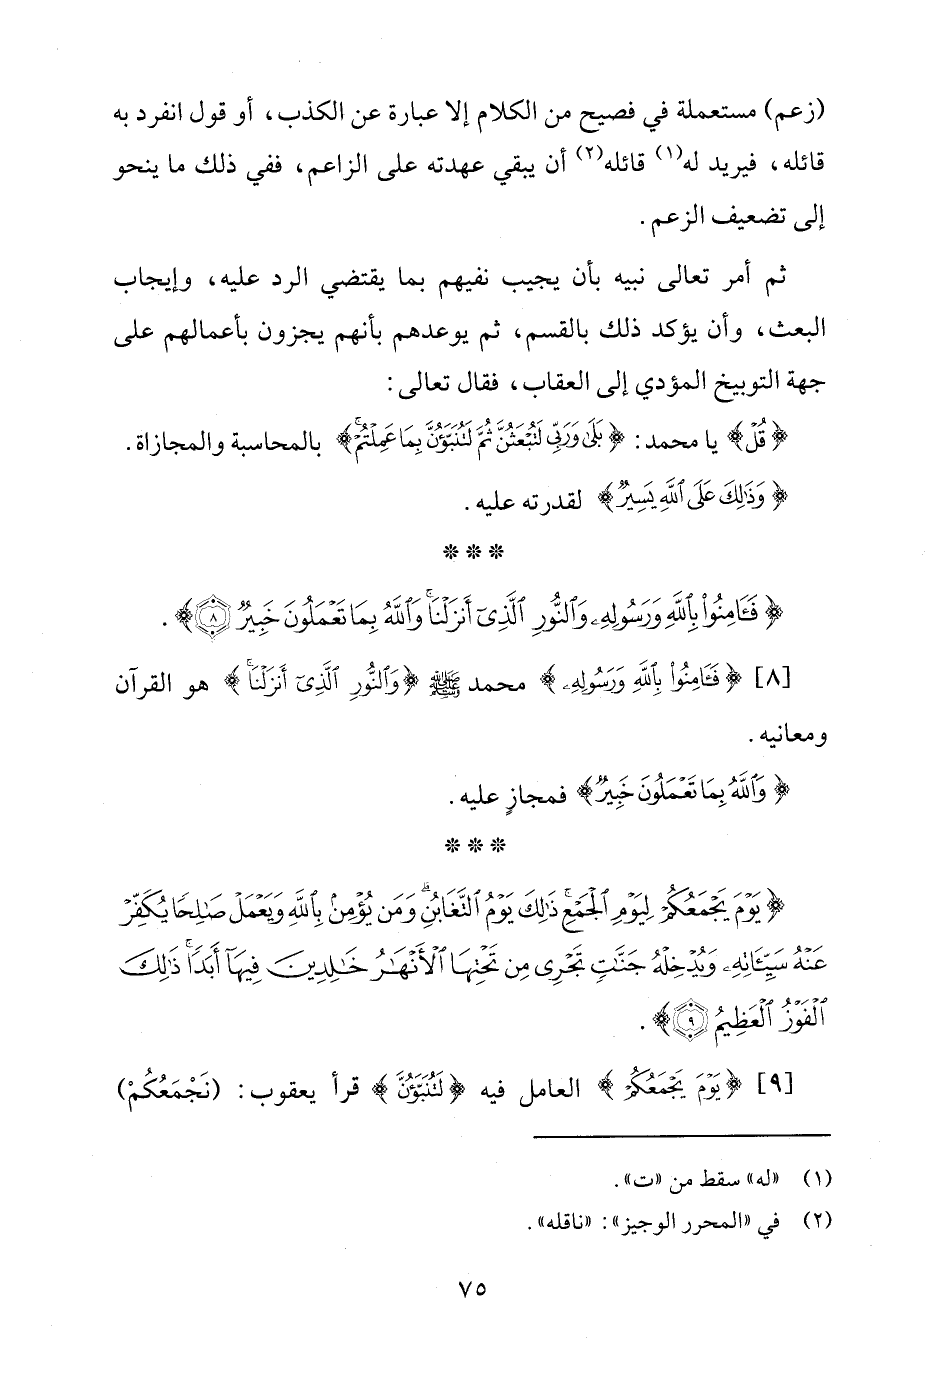 (زعم) مستعملة في فصيح من الكلام إلا عبارة عن الكذب، أو قول انفرد به
قائله، فيريد له(١) قائله(٢) أن يبقي عهدته على الزاعم، ففي ذلك ما ينحو
إلى تضعيف الزعم.
ثم أمر تعالى نبيه بأن يجيب نفيهم بما يقتضي الرد عليه، وإيجاب
البعث، وأن يؤكد ذلك بالقسم، ثم يوعدهم بأنهم يجزون بأعمالهم على
جهة التوبيخ المؤدي إلى العقاب، فقال تعالى:
﴿قُلْ﴾ يا محمد: ﴿بَلَىٰ وَرَبِّي لَتُبْعَثُنَّ ثُمَّ لَتُنَبَّؤُنَّ بِمَا عَمِلْتُمْ ۚ﴾ بالمحاسبة والمجازاة.
﴿وَذَٰلِكَ عَلَى ٱللَّهِ يَسِيرٌ﴾ لقدرته عليه.
* * *
﴿فَـَٔامِنُوا۟ بِٱللَّهِ وَرَسُولِهِۦ وَٱلنُّورِ ٱلَّذِىٓ أَنزَلْنَا ۚ وَٱللَّهُ بِمَا تَعْمَلُونَ خَبِيرٌ ٨﴾.
[٨] ﴿فَـَٔامِنُوا۟ بِٱللَّهِ وَرَسُولِهِۦ﴾ محمد ﷺ ﴿وَٱلنُّورِ ٱلَّذِىٓ أَنزَلْنَا ۚ﴾ هو القرآن
ومعانيه.
﴿وَٱللَّهُ بِمَا تَعْمَلُونَ خَبِيرٌ﴾ فمجازٍ عليه.
* * *
﴿يَوْمَ يَجْمَعُكُمْ لِيَوْمِ ٱلْجَمْعِ ۖ ذَٰلِكَ يَوْمُ ٱلتَّغَابُنِ ۗ وَمَن يُؤْمِنۢ بِٱللَّهِ وَيَعْمَلْ صَٰلِحًا يُكَفِّرْ
عَنْهُ سَيِّـَٔاتِهِۦ وَيُدْخِلْهُ جَنَّٰتٍ تَجْرِى مِن تَحْتِهَا ٱلْأَنْهَٰرُ خَٰلِدِينَ فِيهَآ أَبَدًا ۚ ذَٰلِكَ
ٱلْفَوْزُ ٱلْعَظِيمُ ٩﴾.
[٩] ﴿يَوْمَ يَجْمَعُكُمْ﴾ العامل فيه ﴿لَتُنَبَّؤُنَّ﴾ قرأ يعقوب: (نَجْمَعُكُمْ)
(١) «له» سقط من «ت».
(٢) في «المحرر الوجيز»: «ناقله».
٧٥